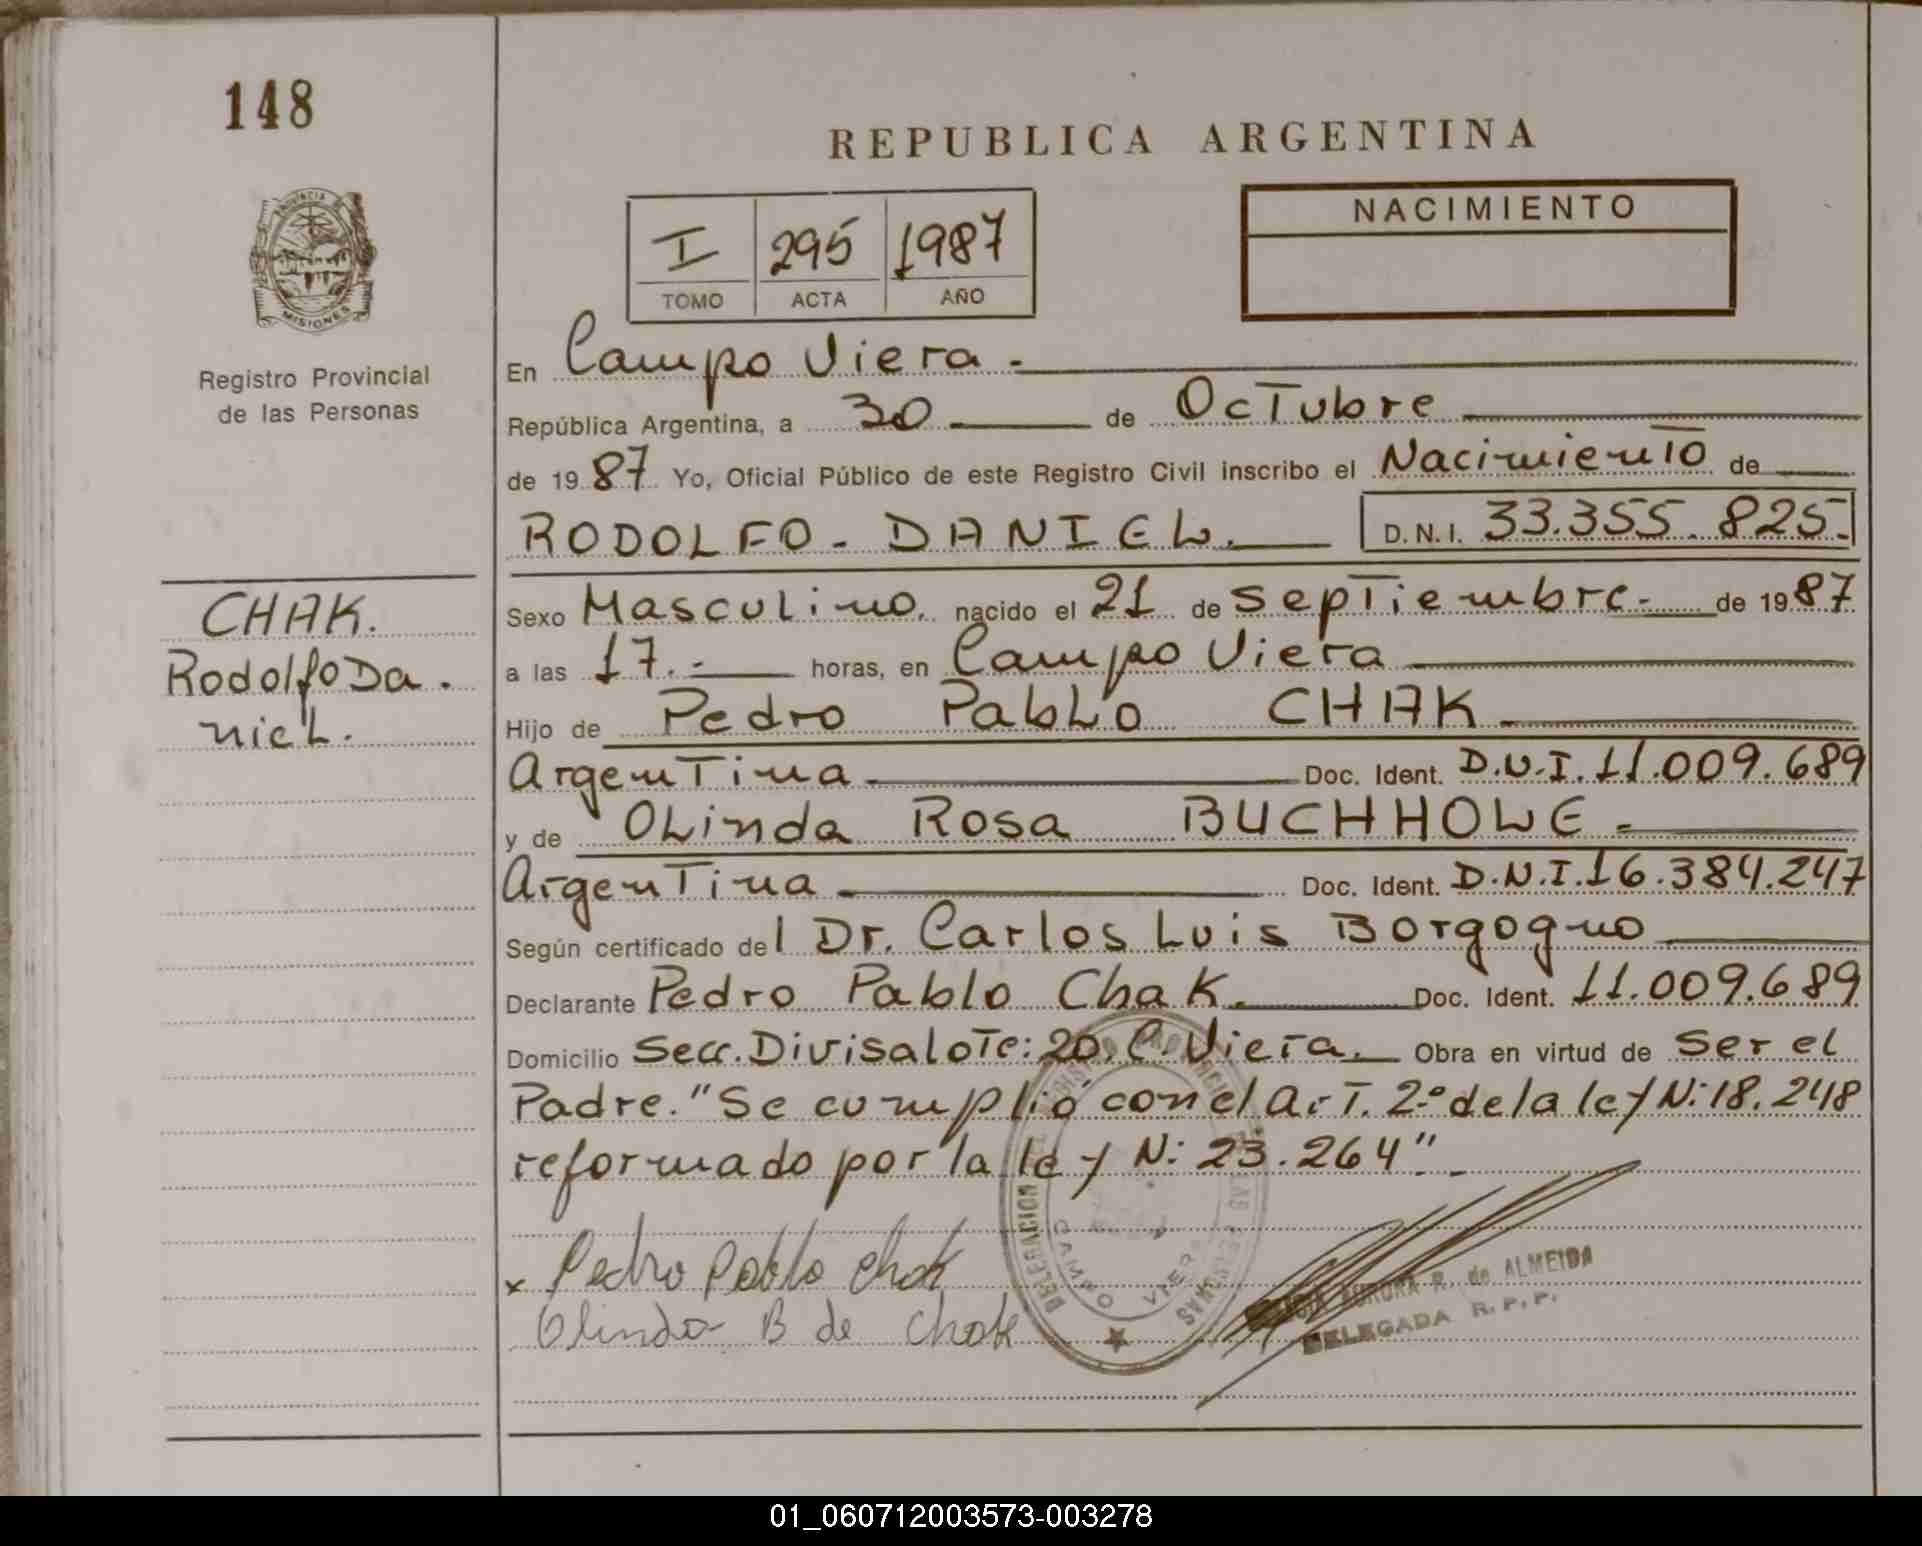 148
PROVINCIA DE
MISIONES
Registro Provincial
de las Personas
CHAK.
Rodolfo Da.
nieL.
REPUBLICA ARGENTINA
I 295 1987
TOMO ACTA AÑO
NACIMIENTO
En Campo Viera.-
República Argentina, a 30 de Octubre
de 19 87 Yo, Oficial Público de este Registro Civil inscribo el Nacimiento de
RODOLFO - DANIEL. D.N.I. 33.355.825.-
Sexo Masculino. nacido el 21 de Septiembre.- de 19 87
a las 17.- horas, en Campo Viera
Hijo de Pedro PabLo CHAK.
Argentina Doc. Ident. D.N.I. 11.009.689
y de OLinda Rosa BUCHHOLE.-
Argentina Doc. Ident. D.N.I. 16.384.247
Según certificado del Dr. Carlos Luis Borgogno
Declarante Pedro Pablo Chak. Doc. Ident. 11.009.689
Domicilio Secc. Divisa lote: 20. C. Viera. Obra en virtud de Ser el
Padre. "Se cumplió con el Art. 2º de la ley N: 18.248
reformado por la ley N: 23.264"
x Pedro Pablo Chak
Olinda B de Chak
DELEGACION
CAMPO VIERA
AURORA R. de ALMEIDA
DELEGADA R.P.P.
01_060712003573-003278